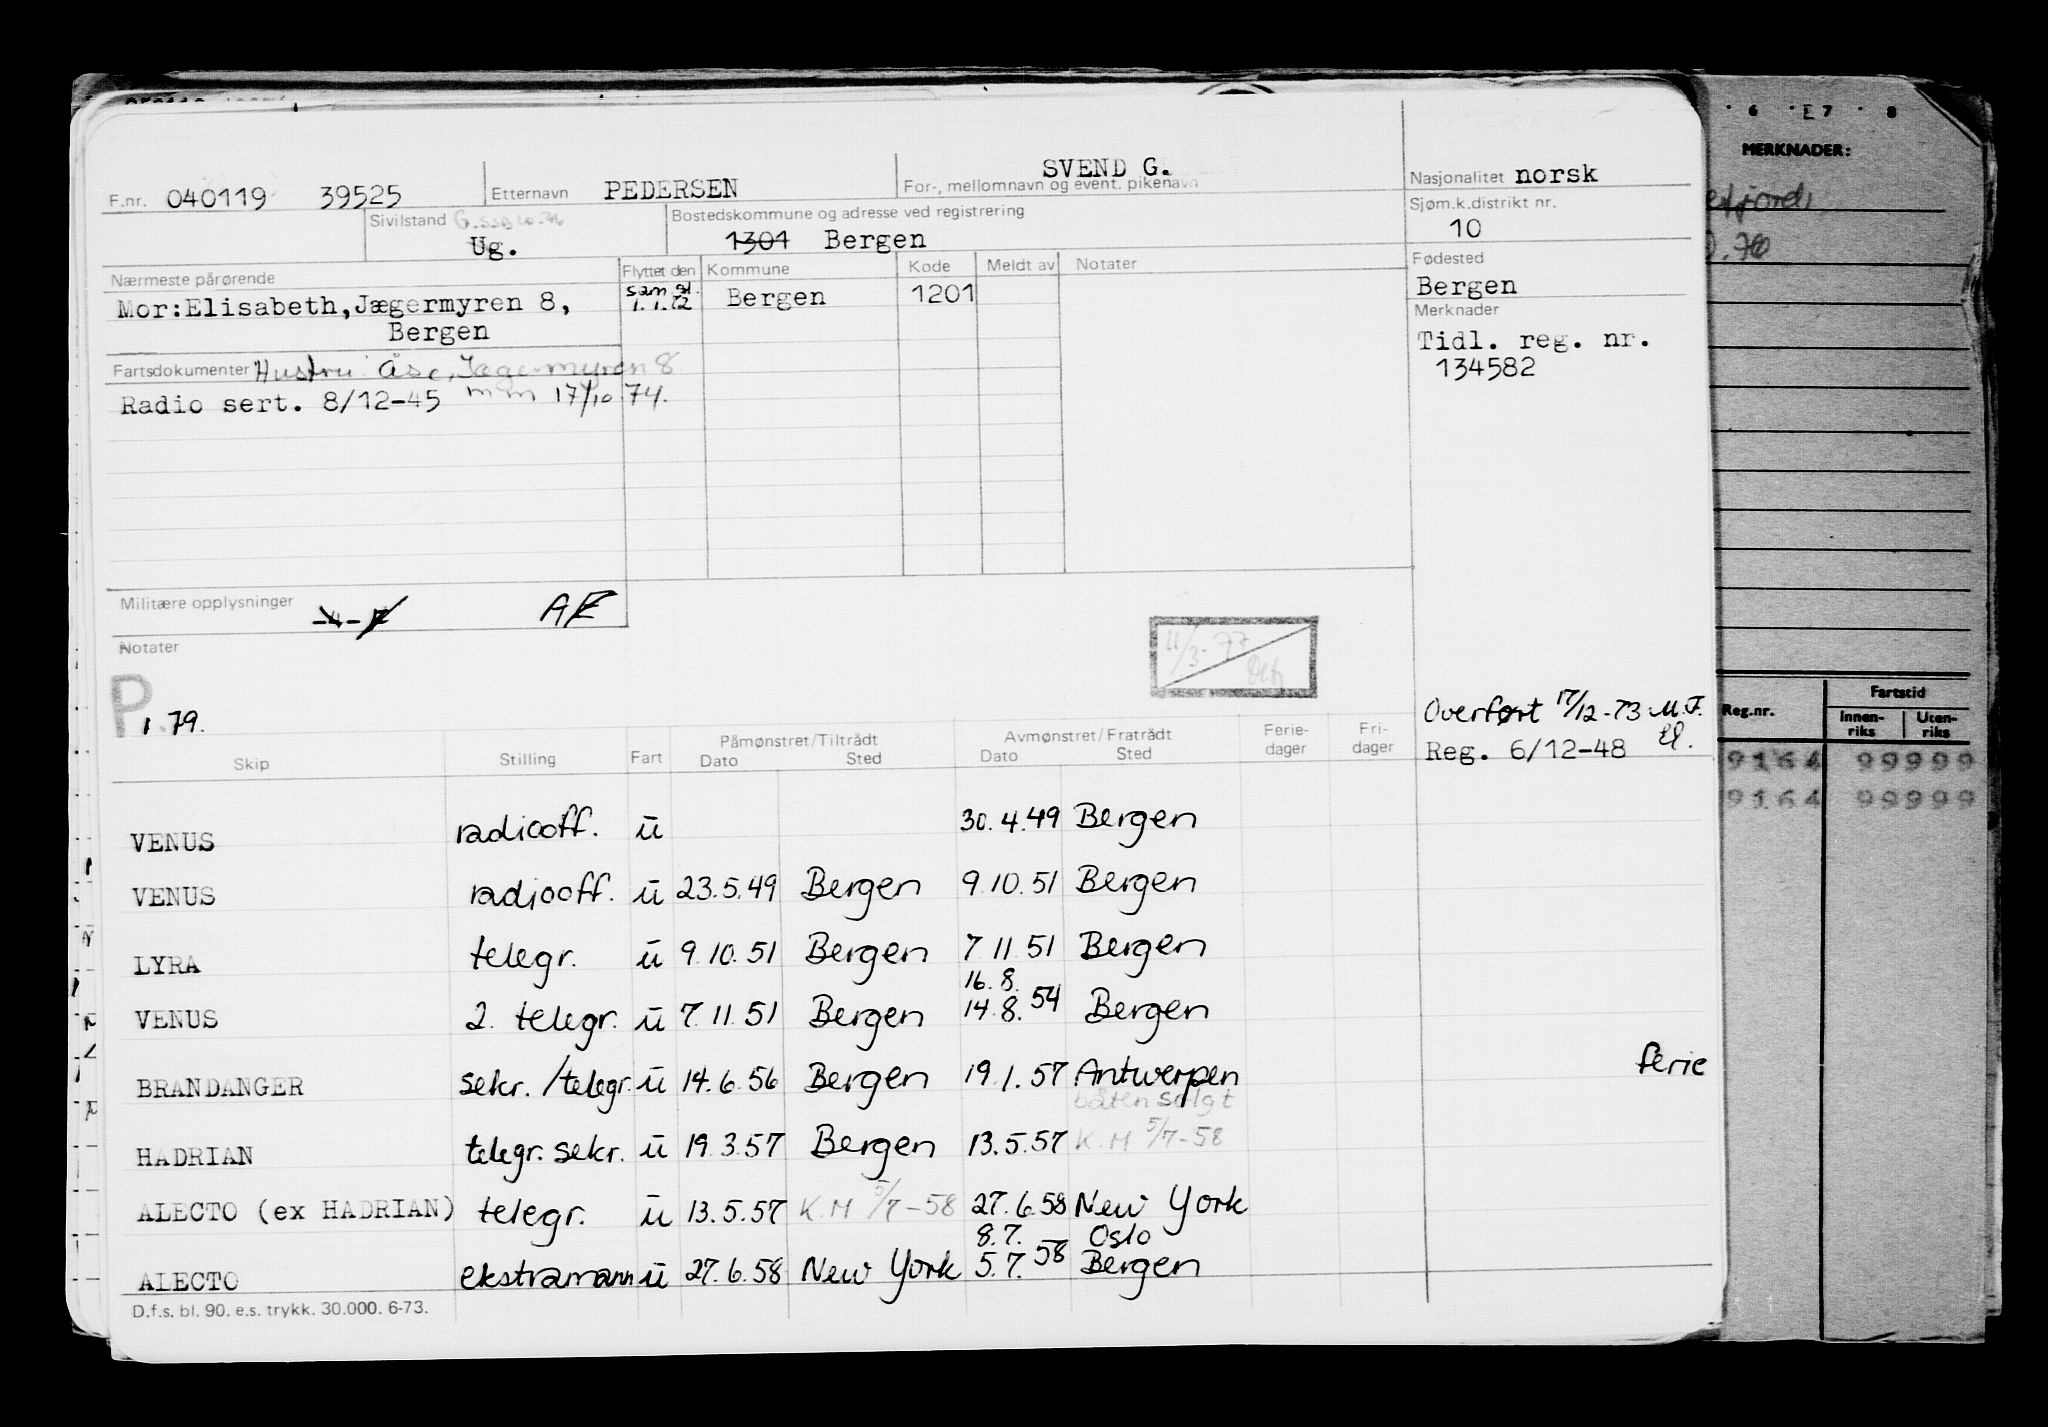 F.nr. 040119 39525 Etternavn PEDERSEN SVEND G. For-, mellomnavn og event. pikenavn Nasjonalitet norsk
Sivilstand Ug. Bostedskommune og adresse ved registrering 1301 Bergen Sjøm.k.distrikt nr. 10
Nærmeste pårørende Flyttet den Kommune Kode Meldt av Notater Fødested
Mor:Elisabeth,Jægermyren 8, 1.1.72 Bergen 1201 Bergen
Bergen Merknader
Fartsdokumenter Hustru Åse, Jægermyren 8 Tidl. reg. nr.
Radio sert. 8/12-45 17/10 74. 134582
Militære opplysninger
Notater
P 1.79.
11/3-77
Overført 17/12-73 M.F.
Reg. 6/12-48
Skip Stilling Fart Påmønstret/Tiltrådt Dato Sted Avmønstret/Fratrådt Dato Sted Ferie-dager Fri-dager
VENUS radiooff. u 30.4.49 Bergen
VENUS radiooff. u 23.5.49 Bergen 9.10.51 Bergen
LYRA telegr. u 9.10.51 Bergen 7 11 51 Bergen
16.8.
VENUS 2. telegr. u 7.11.51 Bergen 14.8.54 Bergen
BRANDANGER sekr./telegr. u 14.6.56 Bergen 19.1.57 Antwerpen ferie
båten solgt
HADRIAN telegr. sekr. u 19.3.57 Bergen 13.5.57 K.M 5/7-58
ALECTO (ex HADRIAN) telegr. u 13.5.57 K.M 5/7-58 27.6.58 New York
8.7. Oslo
ALECTO ekstramann u 27.6.58 New York 5.7.58 Bergen
D.f.s. bl. 90. e.s. trykk. 30.000. 6-73.
6 7 8
MERKNADER:
Reg.nr. Fartstid
Innen-riks Uten-riks
9164 99999
9164 99999